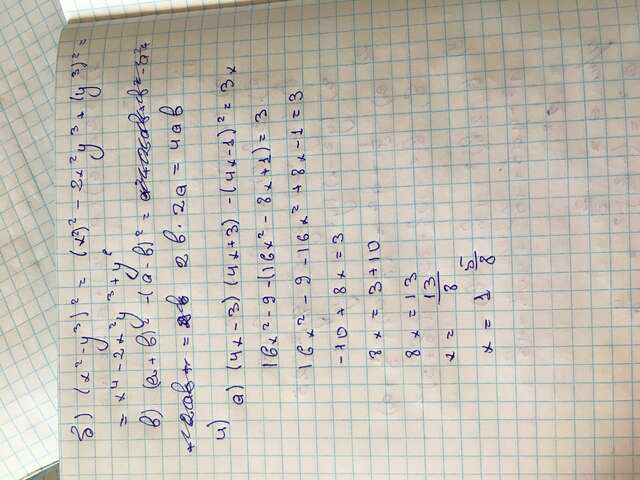 б) (x² - y³)² = (x²)² - 2x²y³ + (y³)² =
= x4 - 2x²y³ + y⁶
в) (a + b)² - (a - b)² =
2b · 2a = 4ab
4)
a) (4x - 3)(4x + 3) - (4x - 1)² = 3x
16x² - 9 - (16x² - 8x + 1) = 3
16x² - 9 - 16x² + 8x - 1 = 3
-10 + 8x = 3
8x = 3 + 10
8x = 13
x = 13/8
x = 1 5/8